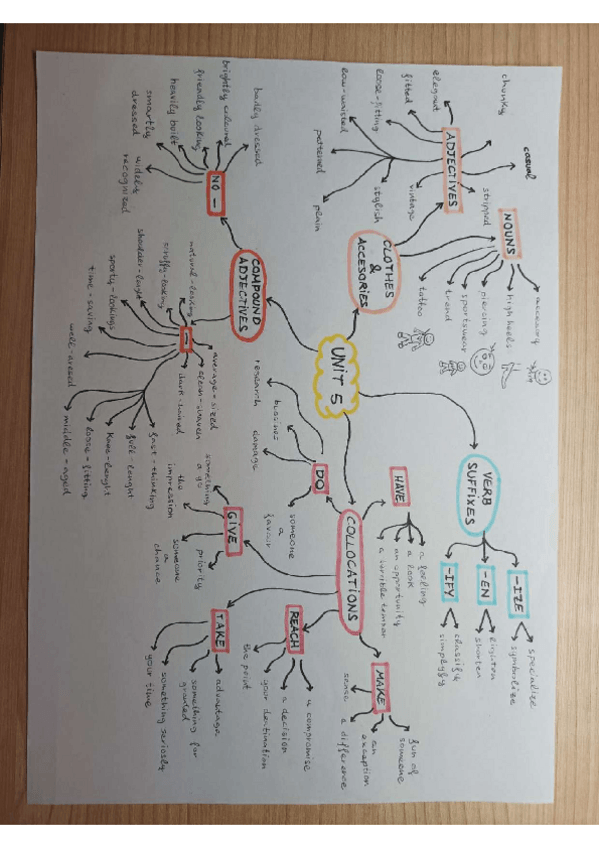 UNIT 5
CLOTHES
&
ACCESORIES
ADJECTIVES
chunky
casual
elegant
fitted
loose-fitting
low-waisted
patterned
plain
stylish
vintage
stripped
NOUNS
high heels
piercing
sportswear
trend
tattoo
COMPOUND
ADJECTIVES
NO -
badly dressed
brightly coloured
friendly looking
heavily built
smartly
dressed
widely
recognized
-
natural-looking
scruffy-looking
shoulder-lenght
sporty-looking
time-saving
well-dressed
middle-aged
loose-fitting
knee-lenght
full-lenght
fast-thinking
dark-haired
clean-shaven
average-sized
VERB
SUFFIXES
-IZE
specialize
symbolize
-EN
shorten
-IFY
classify
simplyfy
COLLOCATIONS
HAVE
a feeling
a look
an opportunity
a terrible temper
DO
research
bussines
damage
someone
a
favour
GIVE
something
a go
the
impression
someone
a
chance
priority
TAKE
advantage
something for
granted
something seriosly
your time
REACH
a compromise
a decision
your destination
the point
MAKE
fun of
someone
an
exception
a difference
sense